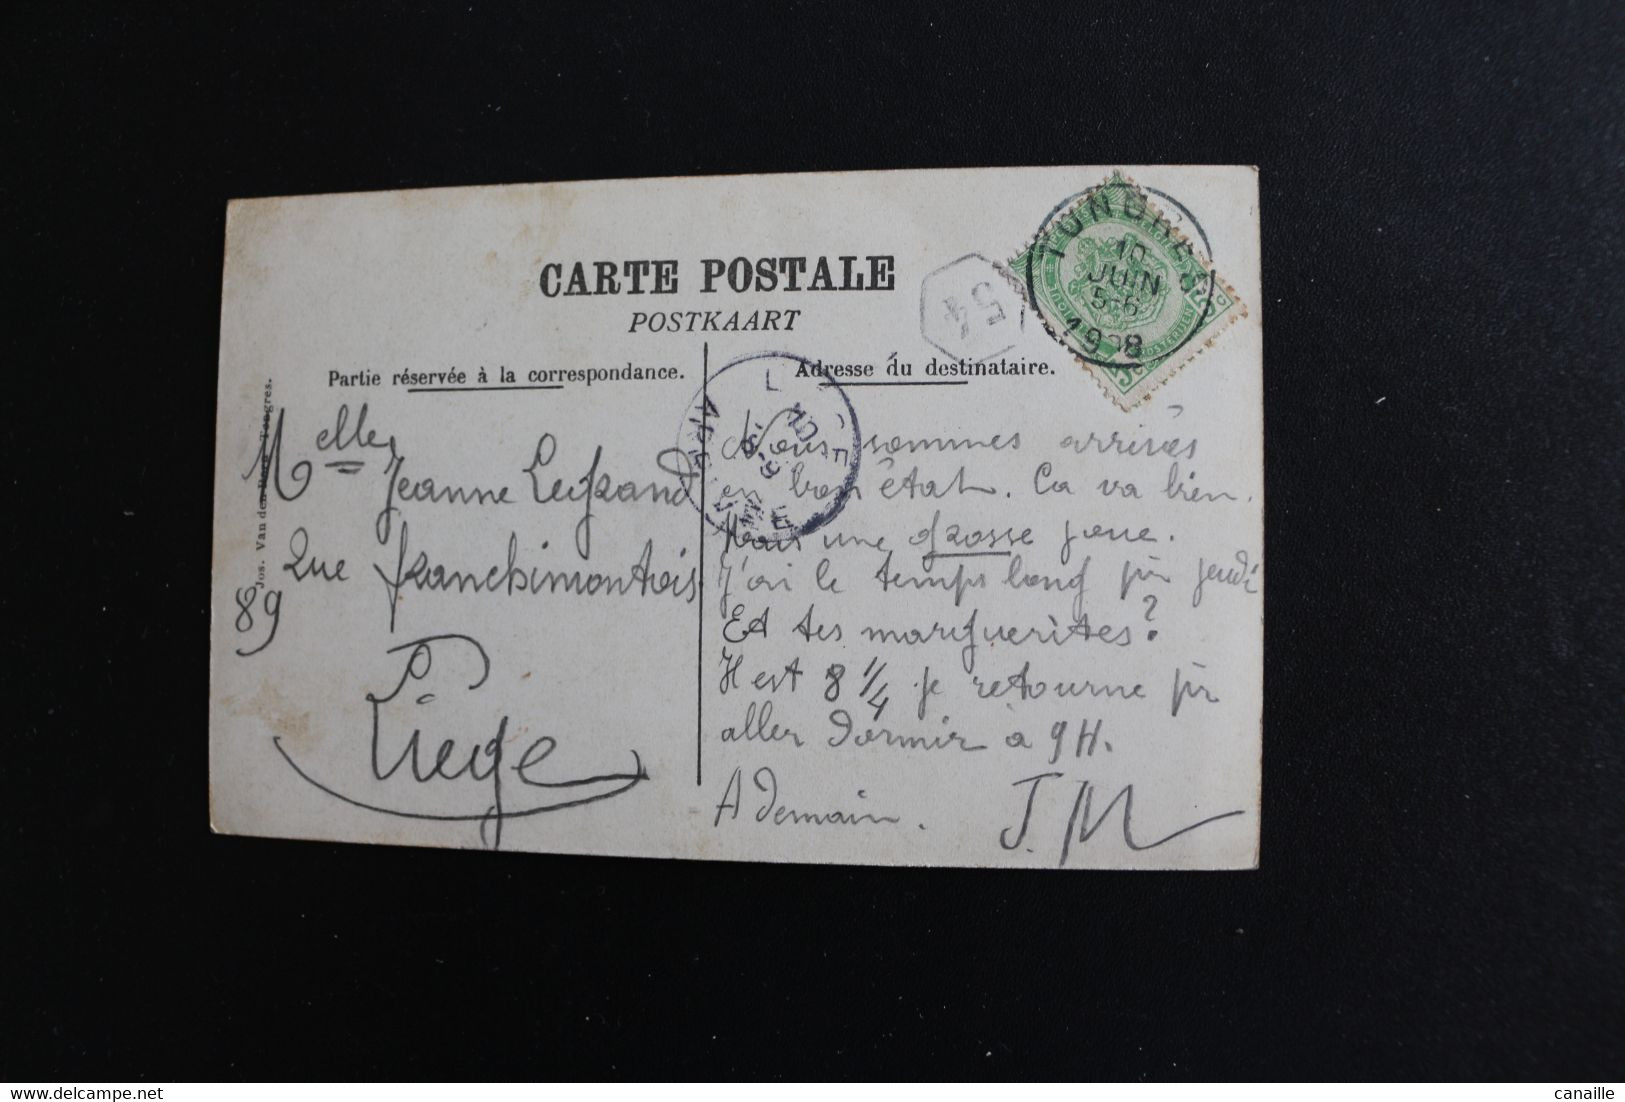 CARTE POSTALE
POSTKAART
Partie réservée à la correspondance.
Adresse du destinataire.
Jos. Van der Tongres.
54
TONGRES
10
JUIN
5-6
1908
Melle Jeanne Legrand
Rue franchimontois
89
Liège
Nous sommes arrivés
en bon état. Ca va bien.
Mais une grosse joue.
J'ai le temps long pr jeudi
Et tes marguerites?
Il est 8 1/4 je retourne pr
aller dormir à 9H.
A demain.
J. M
canaille